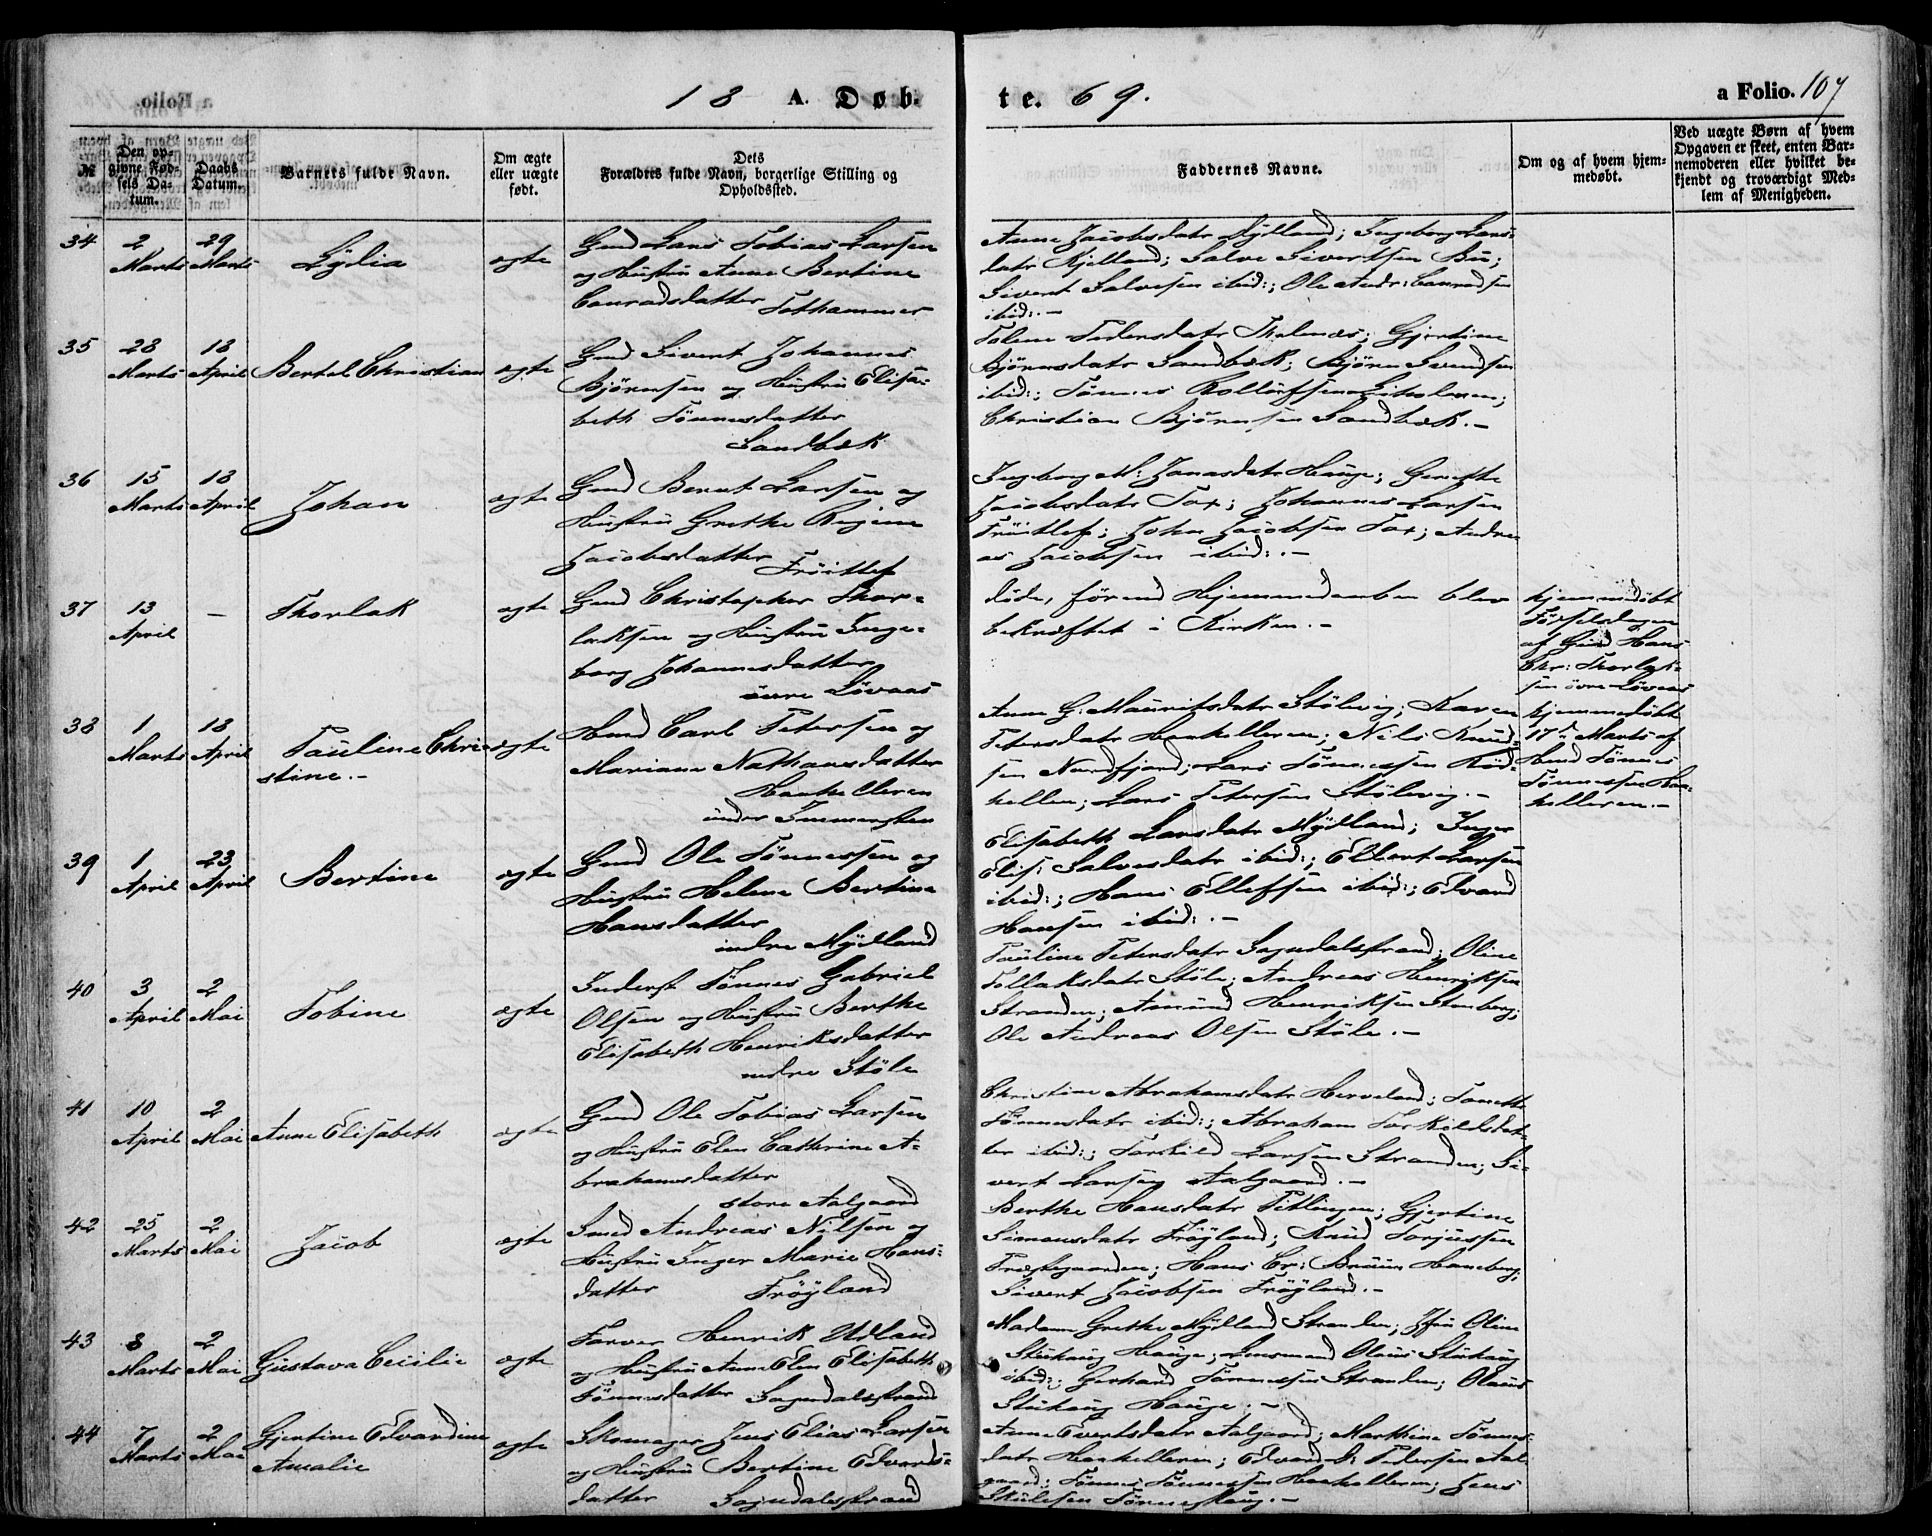 18 A. Døb-
te. 69.
a Folio. 107
№
Den op-
givne Fød-
sels Da-
tum.
Daabs
Datum.
Barnets fulde Navn.
Om ægte
eller uægte
født.
Dets
Forældres fulde Navn, borgerlige Stilling og
Opholdssted.
Faddernes Navne.
Om og af hvem hjem-
medøbt.
Ved uægte Børn af hvem
Opgaven er skeet, enten Bar-
nemoderen eller hvilket be-
kjendt og troværdigt Med-
lem af Menigheden.
34
2
Marts
29
Marts
Lydia
ægte
Gmd Lars Tobias Larsen
og Hustru Anne Bertine
Conradsdatter Tothammer
Anne Jacobsdatr Mydland; Ingeborg Lars-
datr Kjelland; Salve Sivertsen Bu;
Sivert Salvesen ibid:; Ole Andr: Conradsen
ibid:.-
35
28
Marts
18
April
Bertel Christian
ægte
Gmd Sivert Johannes
Bjørnsen og Hustru Elisa-
beth Tønnesdatter
Sandbæk
Tolene Pedersdatr; Gjertine
Bjørnsdatr Sandbæk; Bjørn Svendsen
ibid:; Tønnes Rolloffsen;
Christian Bjørnsen Sandbæk.-
36
15
Marts
18
April
Johan
ægte
Gmd Bernt Larsen og
Hustru Grethe Regine
Jacobsdatter Frøitlef
Ingeborg M: Jonasdatr Hauge; Gurethe
Jacobsdatr Tox; Johannes Larsen
Frøitlef; John Jacobsen Tox; Andre-
as Jacobsen ibid:.-
37
13
April
-
Thorlak
ægte
Gmd Christopher Thor-
laksen og Hustru Inge-
borg Johannesdatter
øvre Løvaas
døde, førend Hjemmedaaben blev
bekræftet i Kirken.-
hjemmedøbt
Fødselsdagen
af Gmd Hans
Chr: Thorlak-
sen øvre Løvaas
38
1
Marts
18
April
Pauline Chri-
stine.-
ægte
Hmd Carl Petersen og
Mariane Nathansdatter
Haakelleren
under Immersten
Anne G: Mauritsdatr Stølvig; Karen
Petersdatr Haakelleren; Nils Knud-
sen Nordfjord; Lars Tønnessen Rød-
hellen; Lars Petersen Stølvig.-
hjemmedøbt
17d Marts af
Hmd Tønnes
Tønnessen Haa-
kelleren.-
39
1
April
23
April
Bertine
ægte
Gmd Ole Tønnessen og
Hustru Helene Bertine
Hansdatter
indre Mydland
Elisabeth Larsdatr Mydland; Inger
Elis: Salvesdatr ibid:; Ellert Larsen
ibid:; Hans Ellefsen ibid:; Edvard
Hansen ibid:.-
40
3
April
2
Mai
Tobine
ægte
Inderst Tønnes Gabriel
Olsen og Hustru Berthe
Elisabeth Henriksdatter
nedre Støle
Pauline Petersdatr Sogndalsstrand; Oline
Tollaksdatr Støle; Andreas Henriksen
Stranden; Amund Henriksen Stenberg;
Ole Andreas Olsen Støle.-
41
10
April
2
Mai
Anne Elisabeth
ægte
Gmd Ole Tobias Larsen
og Hustru Elen Cathrine A-
brahamsdatter
store Aalgaard
Christine Abrahamsdatr Herveland; Tonette
Tønnesdatr ibid:; Abraham Torkildsdat-
ter ibid:; Torkild Larsen Stranden; Si-
vert Larsen Aalgaard.-
42
25
Marts
2
Mai
Jacob
ægte
Smed Andreas Nilsen og
Hustru Inger Marie Hans-
datter Frøyland
Berthe Hansdatr Titlingen; Gjertine
Simonsdatr Frøyland; Knud Torjussen
Præstegaarden; Hans Cr: Bruun Haneberg;
Sivert Jacobsen Frøyland.-
43
8
Marts
2
Mai
Gustava Cecilie
ægte
Farver Henrik Udland
og Hustru Anne Elen Elisabeth
Tønnesdatter Sogndalsstrand
Madam Grethe Mydland Stranden; Jfru Oline
Stuhaug Hauge; Lensmand Olaus Stuhaug
ibid:; Gerhard Tønnessen Stranden; Olaus
Stuhaug Hauge.-
44
7
Marts
2
Mai
Gjertine Edvardine
Amalie
ægte
Skomager Jens Elias Larsen
og Hustru Bertine Edvards-
datter Sogndalsstrand
Anne Evertsdatr Aalgaard; Marthine Tønnes-
datr Haakelleren; Edvard S: Pedersen Aal-
gaard; Tønnes Tønnessen Haakelleren; Jens
Skulesen Tønneshaug.-